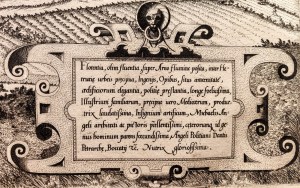 Florentia, olim fluentia super Arno flumine posita, inter He-
trurię urbes præcipua, Ingenijs, Opibus, situs amœnitate,
ædificiorum elegantia, politię præstantia, longe forosissima,
Illustrium familiarum, præcipue vero Medicęorum, produc-
trix laudatissima, insignium artificum, Michaelis
Angeli architecti ac pictoris præstantissimi, ceterorumque id ge-
nus hominum parens fecundissima, Angeli Politiani Dantis
Petrarchę, Bocatij &c. Nutrix gloriosissima.